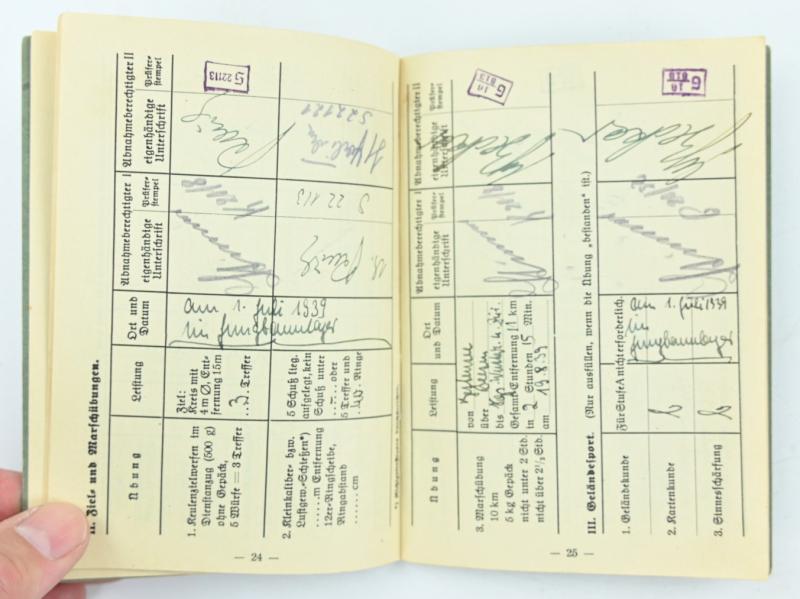 II. Ziel- und Marschübungen.
Übung
Leistung
Ort und
Datum
Abnahmeberechtigter I
eigenhändige
Unterschrift
Prüfer-
stempel
Abnahmeberechtigter II
eigenhändige
Unterschrift
Prüfer-
stempel
1. Keulenzielwerfen im
Dienstanzug (500 g)
ohne Gepäck,
5 Würfe = 3 Treffer
Ziel:
Kreis mit
4 m Ø, Ent-
fernung 15 m
3 Treffer
am 1. Juli 1939
im Jungbannlager
S 22113
2. Kleinkaliber- bzw.
Luftgew.-Schießen*)
......m Entfernung
12er-Ringscheibe,
Ringabstand
...... cm
5 Schuß lieg.
aufgelegt, kein
Schuß unter
oder
5 Treffer und
Ringe
S 22113
S 22121
— 24 —
Übung
Leistung
Ort und
Datum
Abnahmeberechtigter I
eigenhändige
Unterschrift
Prüfer-
stempel
Abnahmeberechtigter II
eigenhändige
Unterschrift
Prüfer-
stempel
3. Marschübung
10 km
5 kg Gepäck
nicht unter 2 Std.
nicht über 2½ Std.
von
über
bis
Gesamt-Entfernung 11 km
in 2 Stunden 15 Min.
am 19.8.39
G
1A
813
III. Geländesport. (Nur ausfüllen, wenn die Übung „bestanden“ ist.)
1. Geländekunde
Für Stufe A nicht erforderlich.
am 1. Juli 1939
im
Jungbannlager
G
1A
2. Kartenkunde
3. Sinnesschärfung
— 25 —